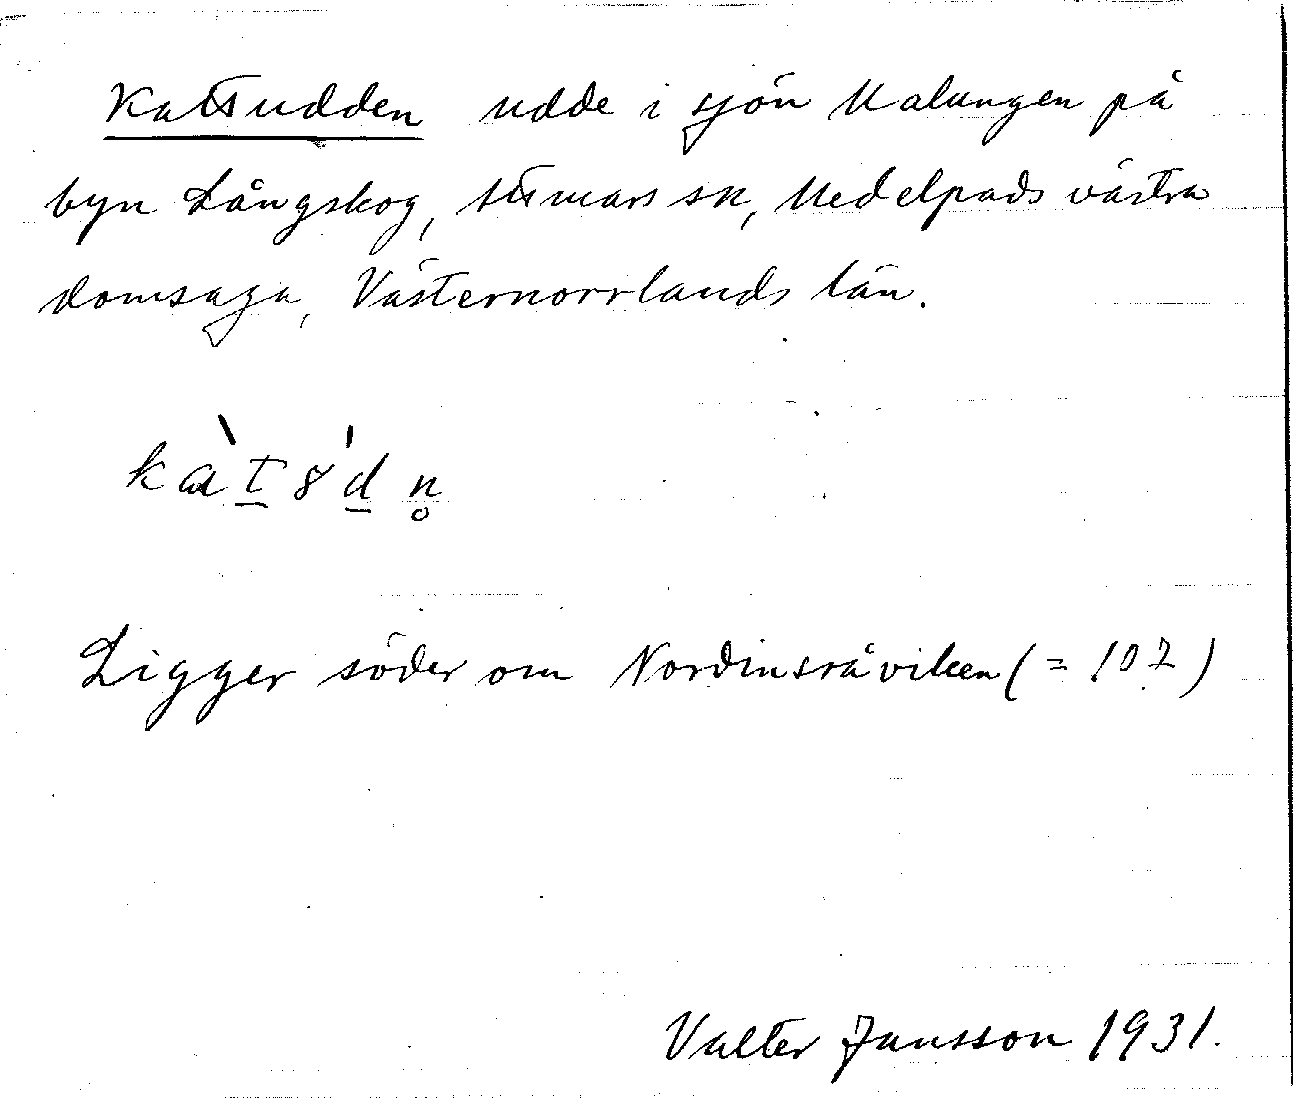 Kattudden udde i sjön Malungen på
byn Långskog, Attmars sn, Medelpads västra
domsaga, Västernorrlands län.
kàt̲8'd̲n̥
Ligger söder om Nordinsråviken (= 107)
Valter Jansson 1931.